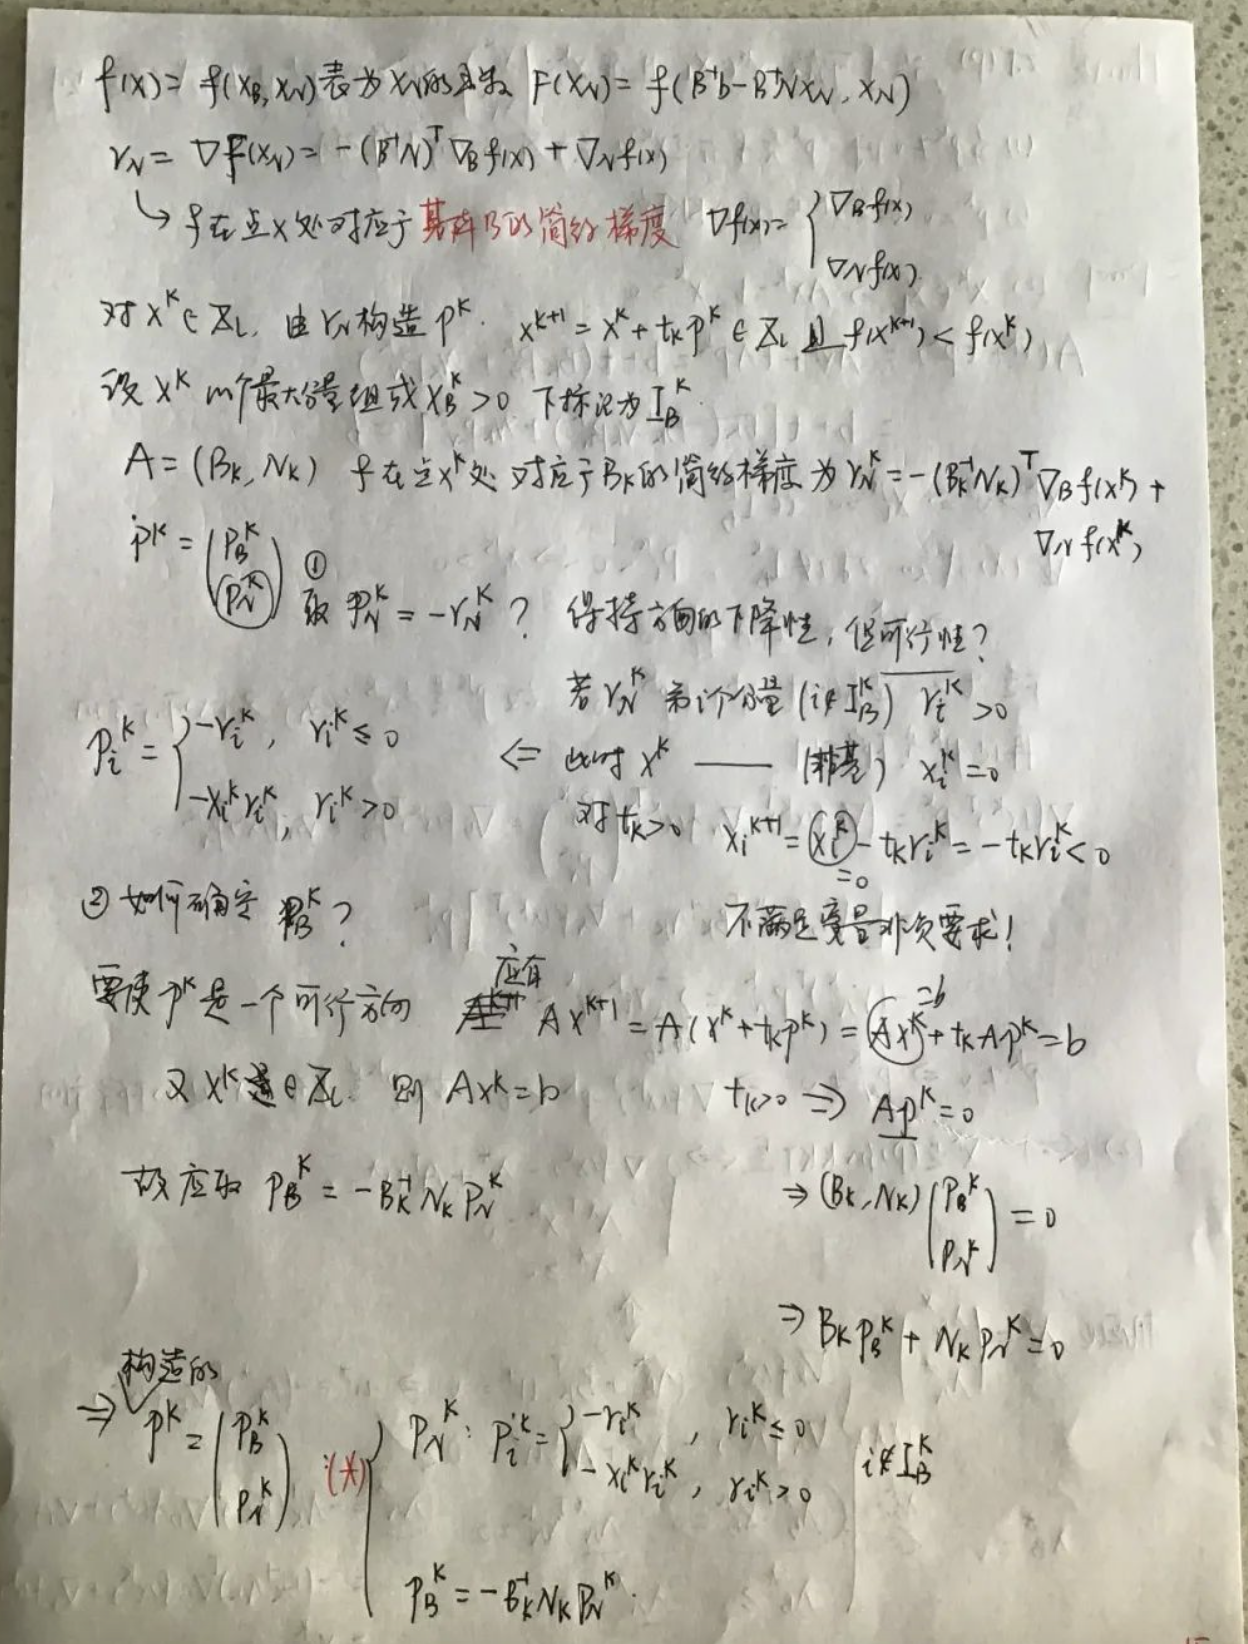 f(x) = f(x_B, x_N) 表为 x_N 的函数 F(x_N) = f(B⁻¹b - B⁻¹N x_N, x_N)
r_N = ∇F(x_N) = -(B⁻¹N)ᵀ ∇_B f(x) + ∇_N f(x)
↳ f 在点 x 处对应于基阵B的简约梯度 ∇f(x) = { ∇_B f(x)
∇_N f(x)
对 x^k ∈ X_L, 由 r_N 构造 p^k. x^{k+1} = x^k + t_k p^k ∈ X_L 且 f(x^{k+1}) < f(x^k)
设 x^k m个最大分量组成 x_B^k > 0 下标记为 I_B^k
A = (B_k, N_k) f 在点 x^k 处对应于 B_k 的简约梯度为 r_N^k = -(B_k⁻¹N_k)ᵀ ∇_B f(x^k) +
∇_N f(x^k)
p^k = (p_B^k
p_N^k) ① 取 p_N^k = -r_N^k ? 保持方向的下降性, 但可行性?
若 r_N^k 第i个分量 (i∉I_B^k) r_i^k > 0
p_i^k = { -r_i^k, r_i^k ≤ 0
-x_i^k r_i^k, r_i^k > 0
⇐ 此时 x^k —— (非基) x_i^k = 0
对 t_k > 0 x_i^{k+1} = x_i^k - t_k r_i^k = -t_k r_i^k < 0
=0
② 如何确定 p_B^k ?
不满足变量非负要求!
要使 p^k 是一个可行方向 应有 A x^{k+1} = A(x^k + t_k p^k) = A x^k + t_k A p^k = b
=b
又 x^k ∈ X_L 则 A x^k = b t_k > 0 ⇒ A p^k = 0
故应取 p_B^k = -B_k⁻¹ N_k p_N^k
⇒ (B_k, N_k) (p_B^k
p_N^k) = 0
⇒ B_k p_B^k + N_k p_N^k = 0
构造的
⇒ p^k = (p_B^k
p_N^k) (*) { p_N^k: p_i^k = { -r_i^k, r_i^k ≤ 0
-x_i^k r_i^k, r_i^k > 0 i∉I_B^k
p_B^k = -B_k⁻¹ N_k p_N^k.